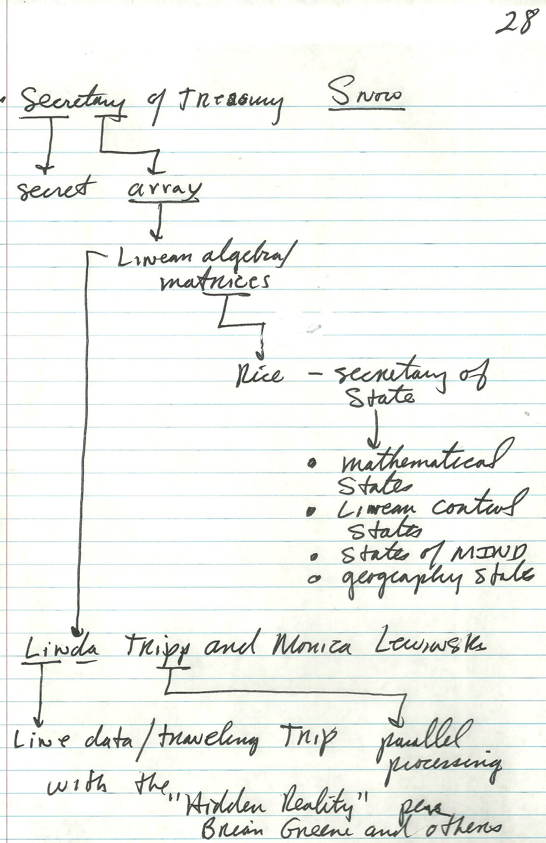 28
Secretary of Treasury Snow
secret array
Linear algebra/
matrices
Rice – secretary of
State
• mathematical
States
• Linear control
States
• States of MIND
• geography state
Linda Tripp and Monica Lewinski
Line data/traveling Trip parallel
processing
with the
"Hidden Reality" per
Brian Greene and others